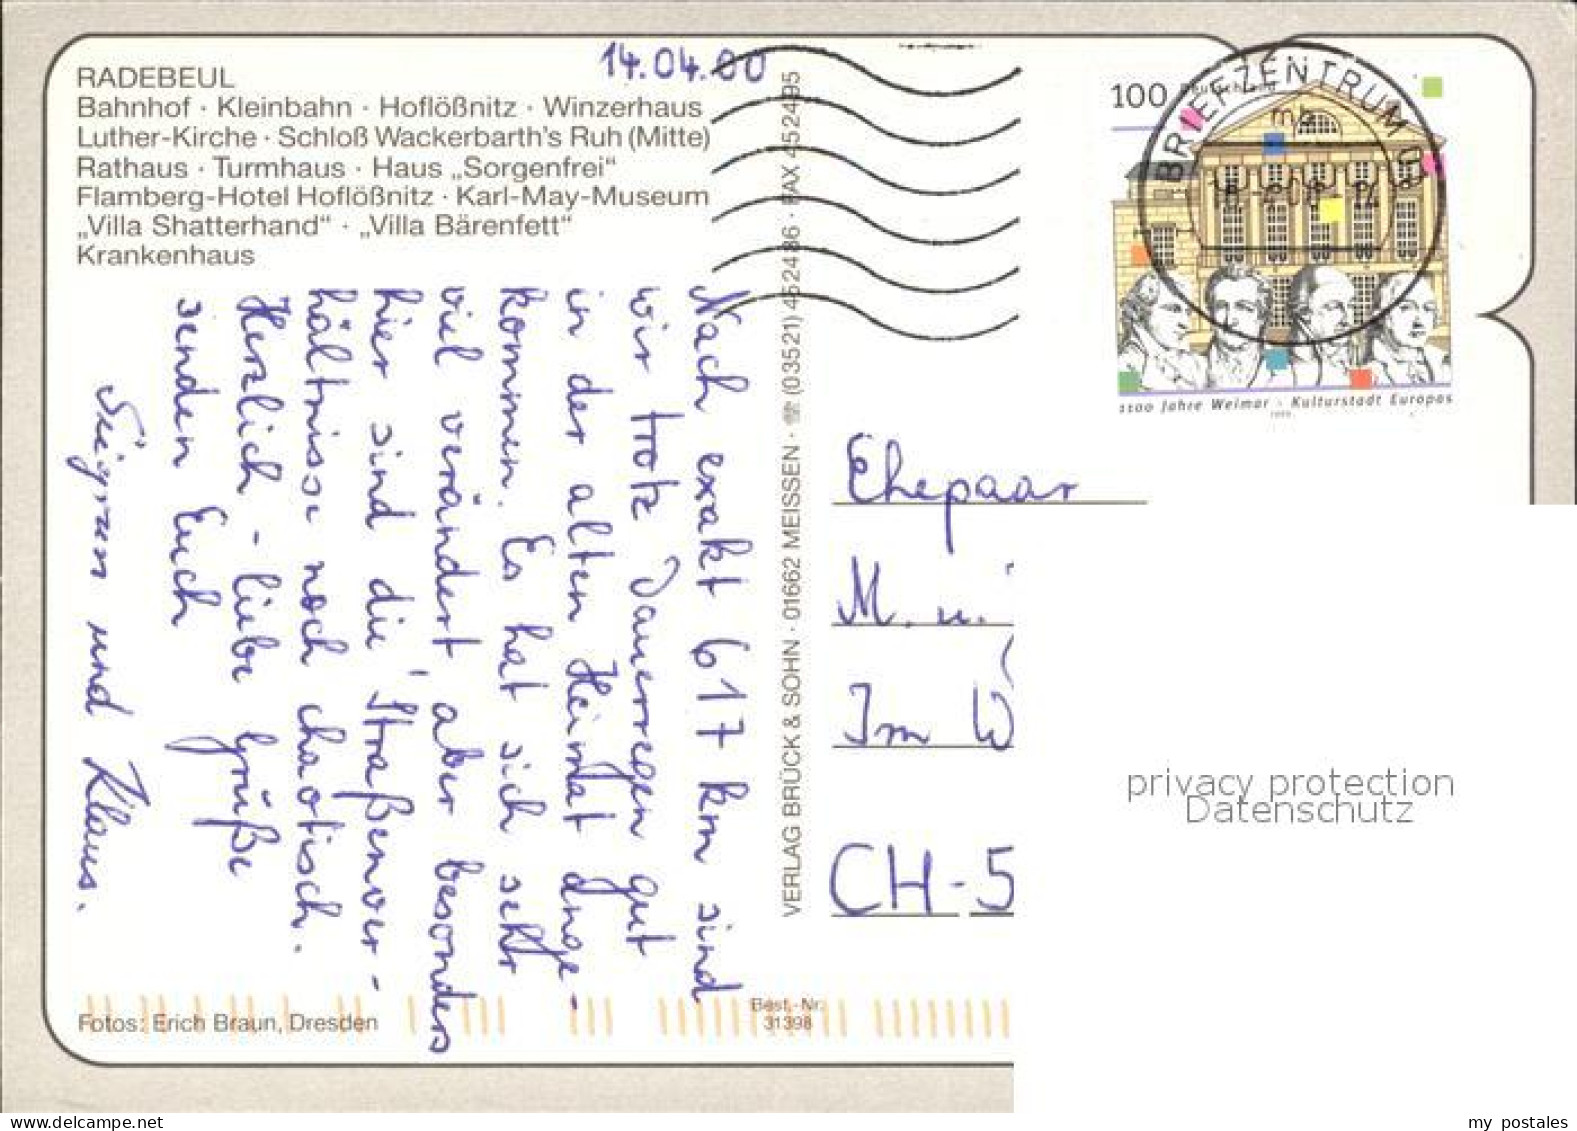 14.04.00
RADEBEUL
Bahnhof · Kleinbahn · Hoflößnitz · Winzerhaus
Luther-Kirche · Schloß Wackerbarth's Ruh (Mitte)
Rathaus · Turmhaus · Haus „Sorgenfrei“
Flamberg-Hotel Hoflößnitz · Karl-May-Museum
„Villa Shatterhand“ · „Villa Bärenfett“
Krankenhaus
Nach exakt 617 km sind
wir trotz Dauerregen gut
in der alten Heimat ange-
kommen. Es hat sich sehr
viel verändert, aber besonders
hier sind die Straßenver-
hältnisse noch chaotisch.
Herzlich - liebe Grüße
senden Euch
Sigrun und Klaus.
Fotos: Erich Braun, Dresden
VERLAG BRÜCK & SOHN · 01662 MEISSEN · ☏ (03521) 452436 · FAX 452495
Best.-Nr.
31398
100 Deutschland
BRIEFZENTRUM
mb
1100 Jahre Weimar - Kulturstadt Europas
1999
Ehepaar
M. u.
Im W
CH-5
privacy protection
Datenschutz
my postales